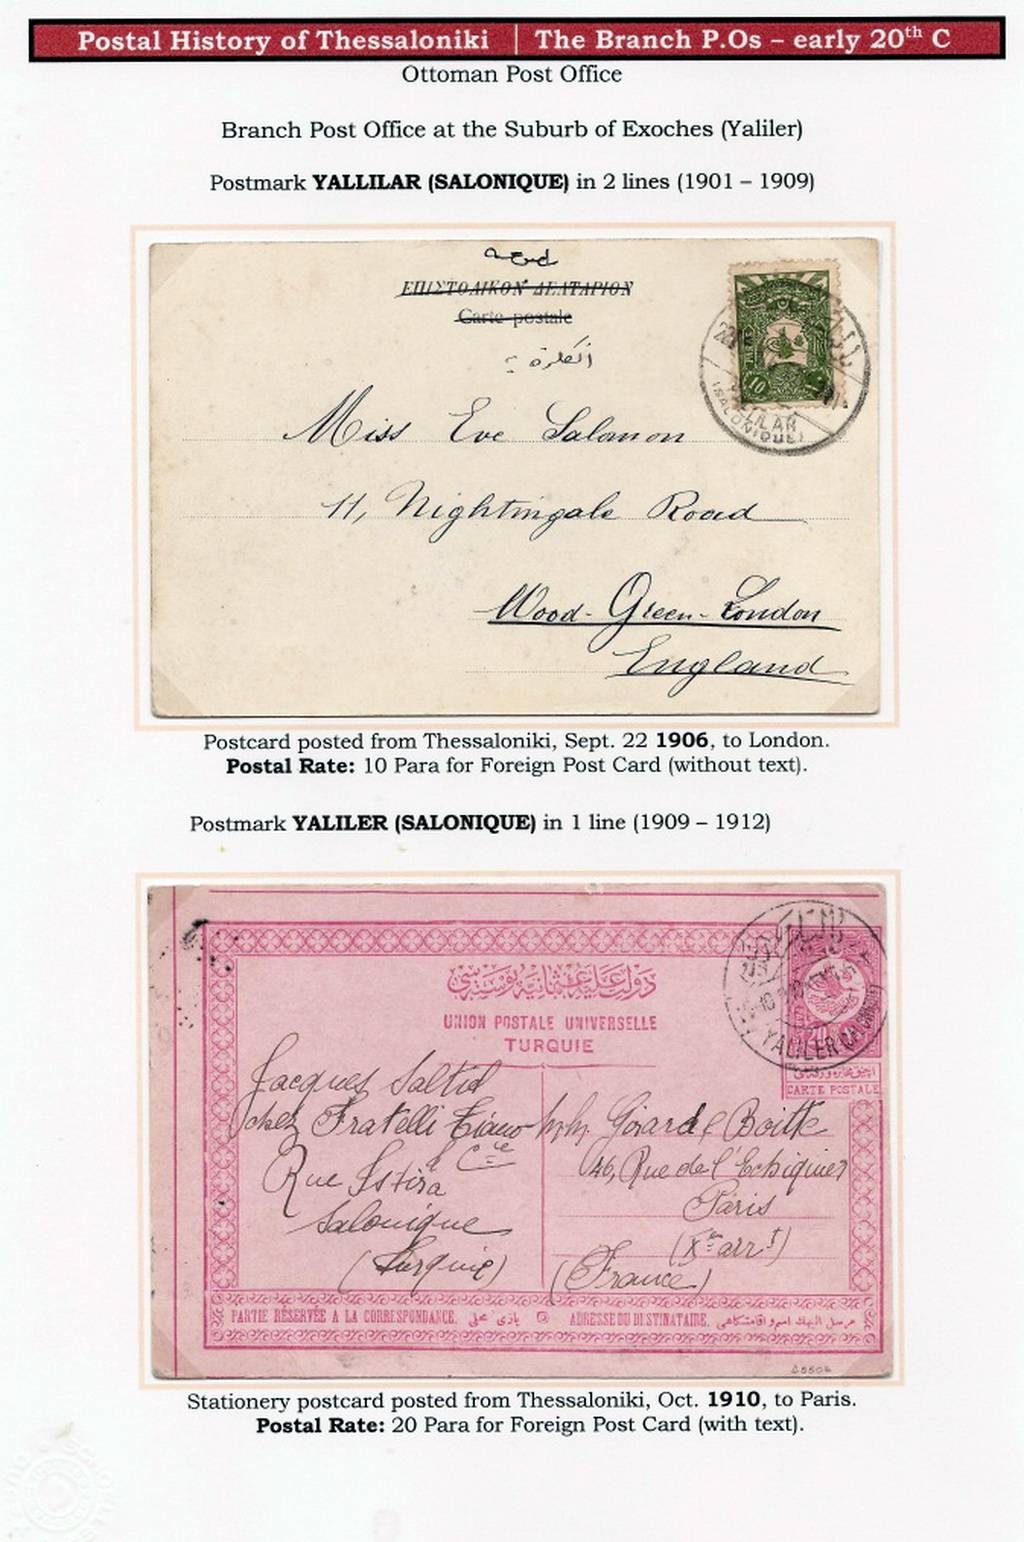 Postal History of Thessaloniki | The Branch P.Os – early 20th C
Ottoman Post Office
Branch Post Office at the Suburb of Exoches (Yaliler)
Postmark YALLILAR (SALONIQUE) in 2 lines (1901 – 1909)
ΕΠΙΣΤΟΛΙΚΟΝ ΔΕΛΤΑΡΙΟΝ
Carte postale
10
(SALONIQUE)
Miss Eve Salamon
11, Nightingale Road
Wood-Green-London
England
Postcard posted from Thessaloniki, Sept. 22 1906, to London.
Postal Rate: 10 Para for Foreign Post Card (without text).
Postmark YALILER (SALONIQUE) in 1 line (1909 – 1912)
دولت عليه عثمانيه پوسته سى
UNION POSTALE UNIVERSELLE
TURQUIE
YALILER
20
CARTE POSTALE
Jacques
chez Fratelli Tiano
& Cie
Rue Istira
Salonique
(Turquie)
Girard & Boitte
46, Rue de l'Echiquier
Paris
(Xe arrt)
(France)
PARTIE RÉSERVÉE A LA CORRESPONDANCE. ADRESSE DU DESTINATAIRE.
Stationery postcard posted from Thessaloniki, Oct. 1910, to Paris.
Postal Rate: 20 Para for Foreign Post Card (with text).